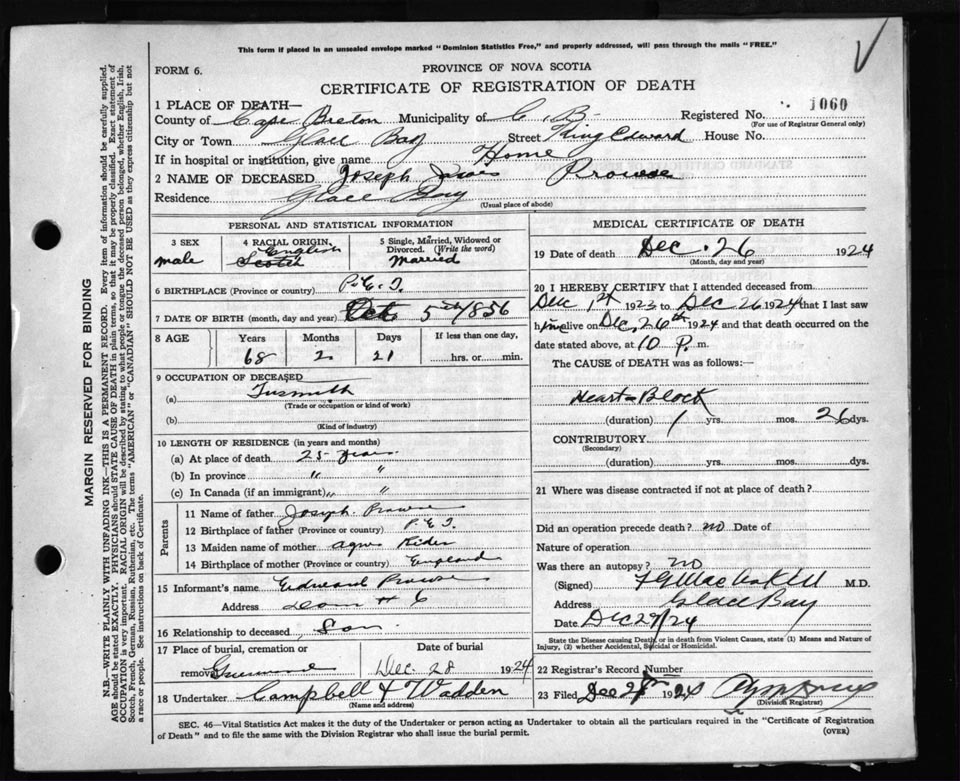 This form if placed in an unsealed envelope marked "Dominion Statistics Free," and properly addressed, will pass through the mails "FREE."
FORM 6.
PROVINCE OF NOVA SCOTIA
CERTIFICATE OF REGISTRATION OF DEATH
1 PLACE OF DEATH—
County of Cape Breton Municipality of C. B. Registered No. 1060
(For use of Registrar General only)
City or Town Glace Bay Street King Edward House No.
If in hospital or institution, give name Home
2 NAME OF DECEASED Joseph James Prowse
Residence Glace Bay
(Usual place of abode)
PERSONAL AND STATISTICAL INFORMATION
3 SEX 4 RACIAL ORIGIN 5 Single, Married, Widowed or Divorced. (Write the word)
male English Scotch Married
6 BIRTHPLACE (Province or country) P.E.I.
7 DATE OF BIRTH (month, day and year) Oct 5th 1856
8 AGE Years Months Days If less than one day,
68 2 21 hrs. or min.
9 OCCUPATION OF DECEASED
(a) Tinsmith
(Trade or occupation or kind of work)
(b)
(Kind of industry)
10 LENGTH OF RESIDENCE (in years and months)
(a) At place of death 25 years
(b) In province " "
(c) In Canada (if an immigrant) " "
Parents
11 Name of father Joseph Prowse
12 Birthplace of father (Province or country) P.E.I.
13 Maiden name of mother Agnes Rider
14 Birthplace of mother (Province or country) England
15 Informant's name Edward Prowse
Address Dom # 6
16 Relationship to deceased Son
17 Place of burial, cremation or
removal Dec. 28 1924
18 Undertaker Campbell & Wadden
(Name and address)
MEDICAL CERTIFICATE OF DEATH
19 Date of death Dec. 26 1924
(Month, day and year)
20 I HEREBY CERTIFY that I attended deceased from
Dec 1st 1923 to Dec 26 1924 that I last saw
him alive on Dec. 26th 1924 and that death occurred on the
date stated above, at 10 P. m.
The CAUSE OF DEATH was as follows:—
Heart Block
(duration) 1 yrs. mos. 26 dys.
CONTRIBUTORY
(Secondary)
(duration) yrs. mos. dys.
21 Where was disease contracted if not at place of death?
Did an operation precede death? no Date of
Nature of operation
Was there an autopsy? no
(Signed) M.D.
Address Glace Bay
Date Dec 29/24
State the Disease causing Death, or in death from Violent Causes, state (1) Means and Nature of
Injury, (2) whether Accidental, Suicidal or Homicidal.
22 Registrar's Record Number
23 Filed Dec 1924
(Division Registrar)
SEC. 46—Vital Statistics Act makes it the duty of the Undertaker or person acting as Undertaker to obtain all the particulars required in the "Certificate of Registration
of Death" and to file the same with the Division Registrar who shall issue the burial permit.
(OVER)
MARGIN RESERVED FOR BINDING
N.B.—WRITE PLAINLY WITH UNFADING INK—THIS IS A PERMANENT RECORD. Every item of information should be carefully supplied.
AGE should be stated EXACTLY. PHYSICIANS should STATE CAUSE OF DEATH in plain terms, so that it may be properly classified. Exact statement of
OCCUPATION is very important. RACIAL ORIGIN will be described by stating to what people or tongue the deceased person belonged, whether English, Irish,
Scotch, French, German, Russian, Ruthenian, etc. The terms "AMERICAN" or "CANADIAN" SHOULD NOT BE USED as they express citizenship but not
a race or people. See instructions on back of Certificate.